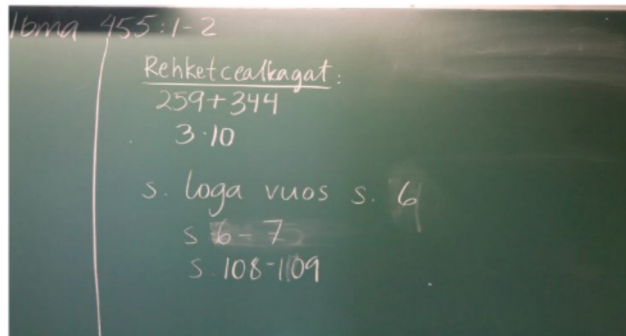 Ibma 455:1-2
Rehketcealkagat:
259+344
3·10
s. loga vuos s. 6
s 6-7
s. 108-109